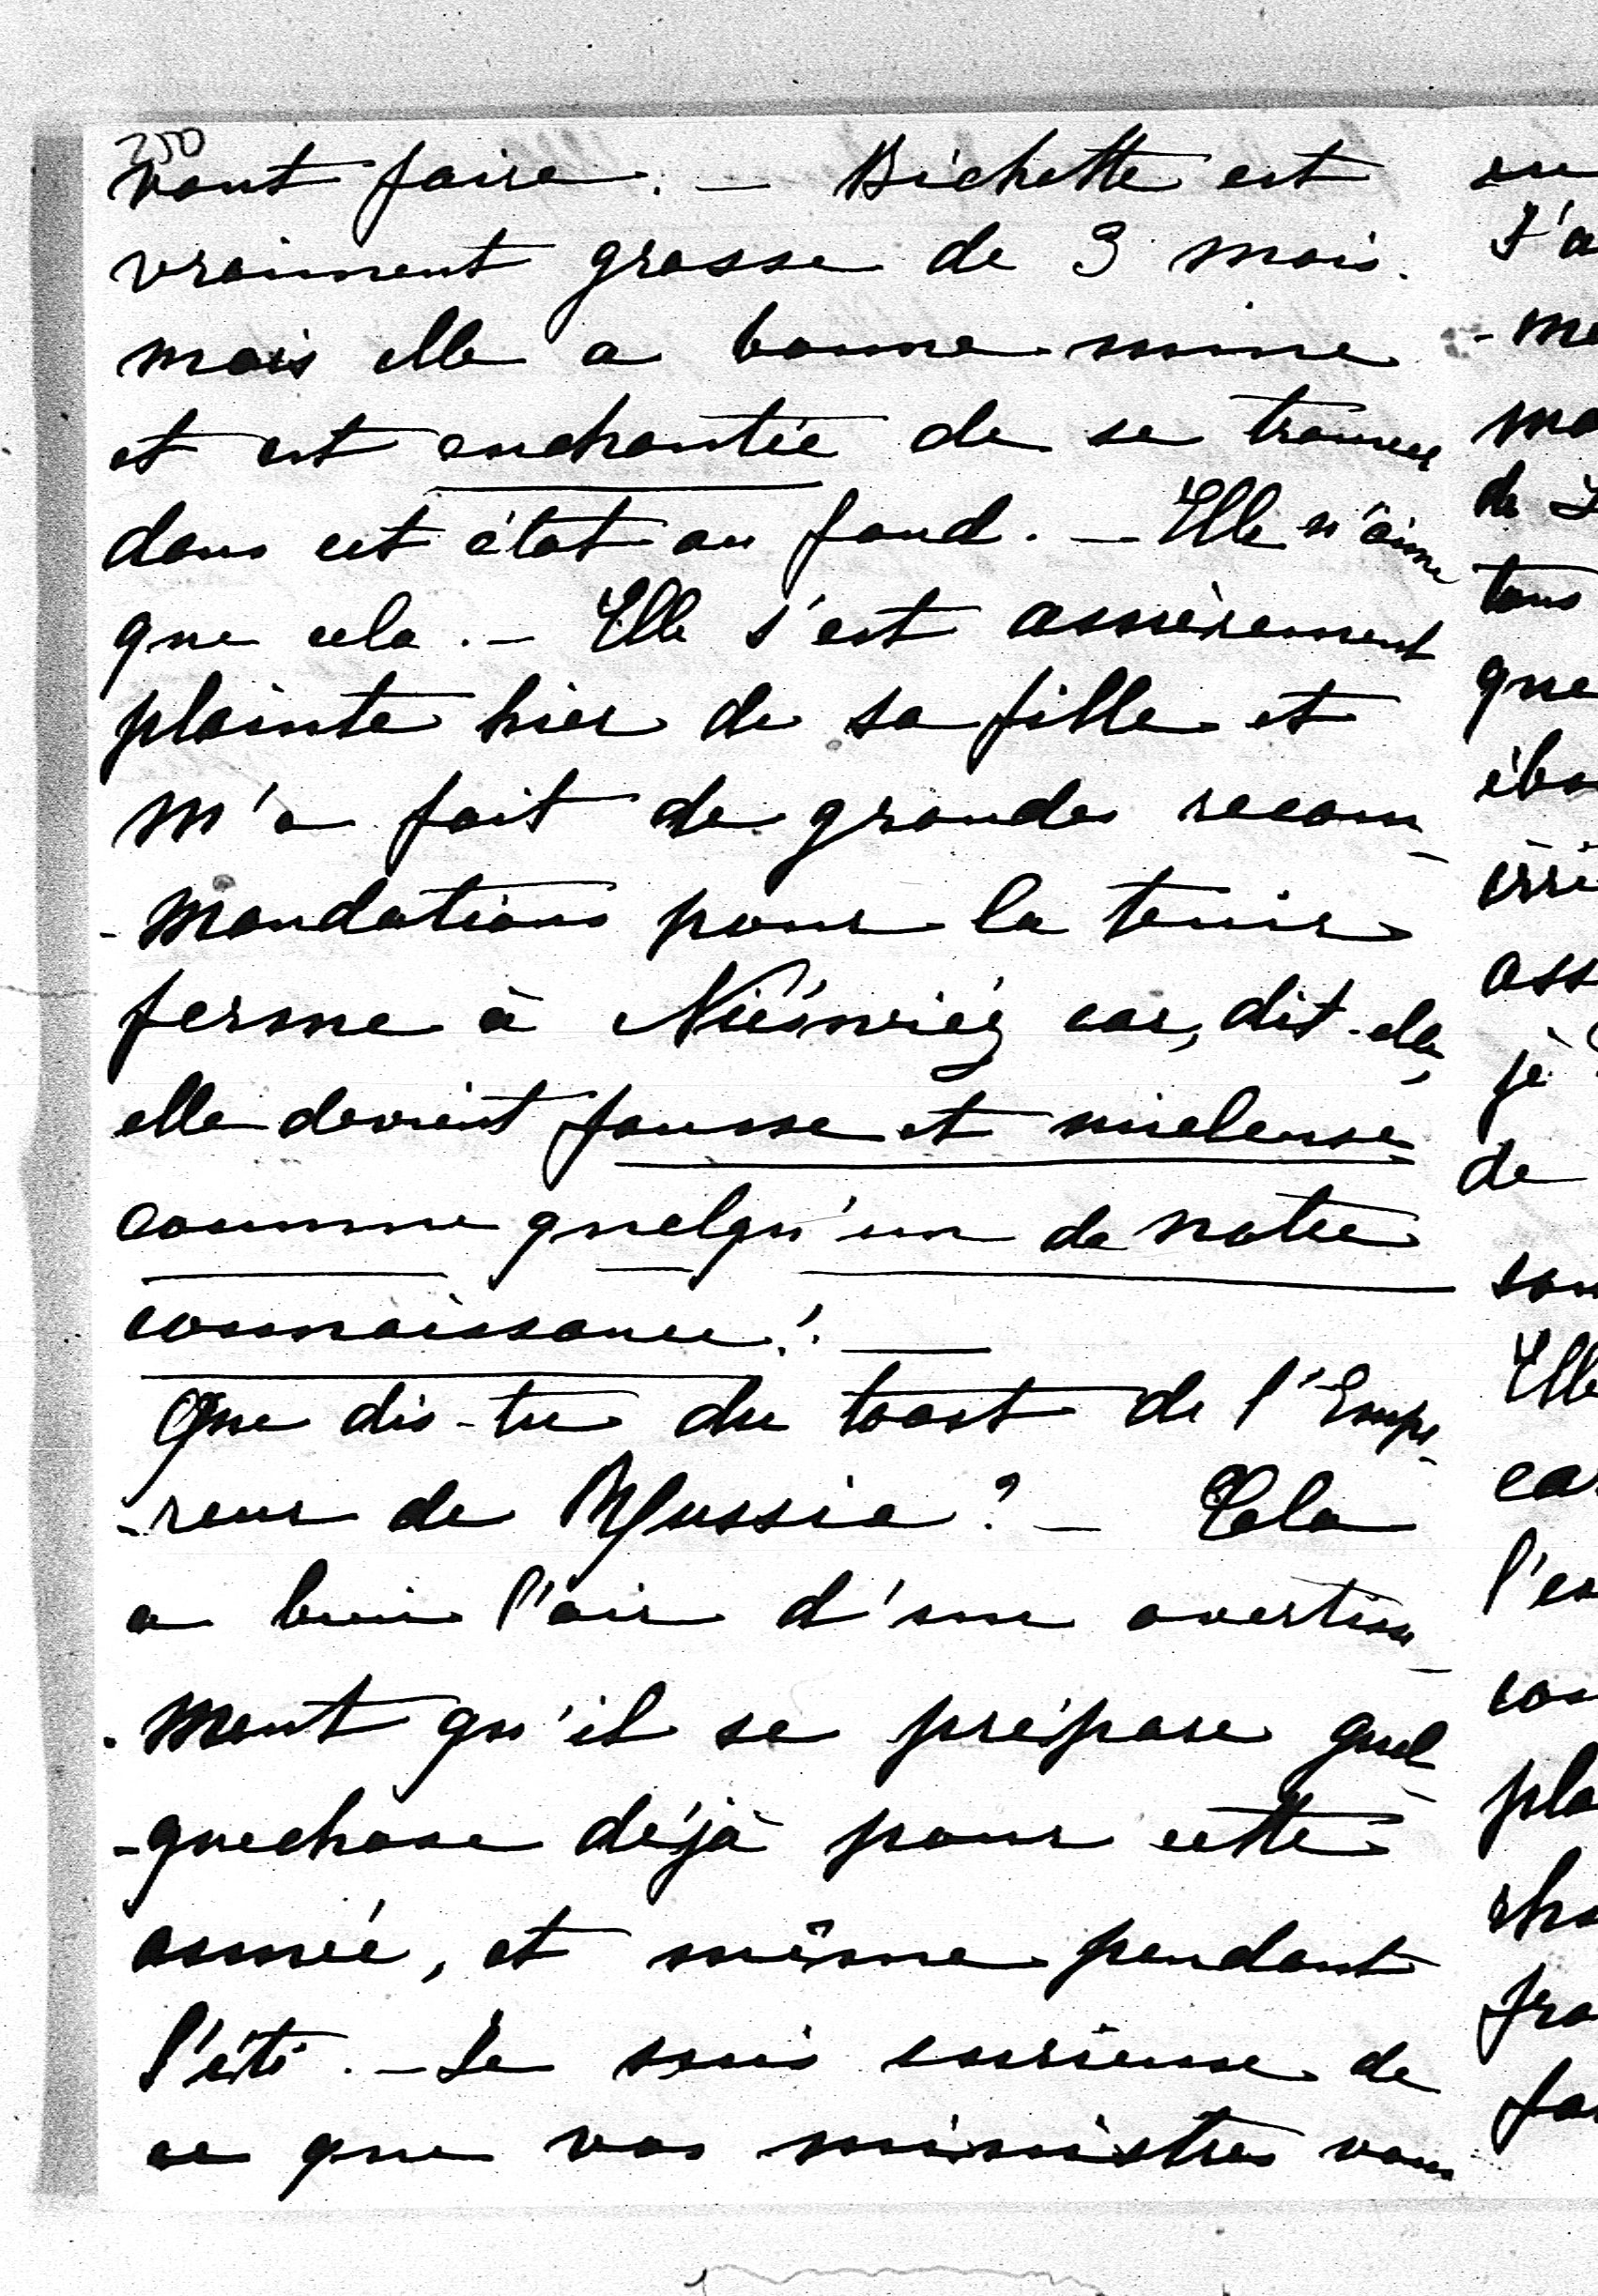 250
vont faire. — Bichette est
vraiment grosse de 3 mois.
mais elle a bonne mine
et est enchantée de se trouver
dans cet état au fond. — Elle n'aime
que cela. — Elle s'est amèrement
plainte hier de sa fille et
m'a fait de grandes recom-
-mandations pour la tenir
ferme à Nieśwież car, dit-elle,
elle devient fausse et mieleuse
comme quelqu'un de notre
connaissance! —
Que dis-tu du toast de l'Empe-
-reur de Russie? — Cela
a bien l'air d'un avertisse-
-ment qu'il se prépare quel-
-quechose déjà pour cette
année, et même pendant
l'été. — Je suis curieuse de
ce que vos ministres vous